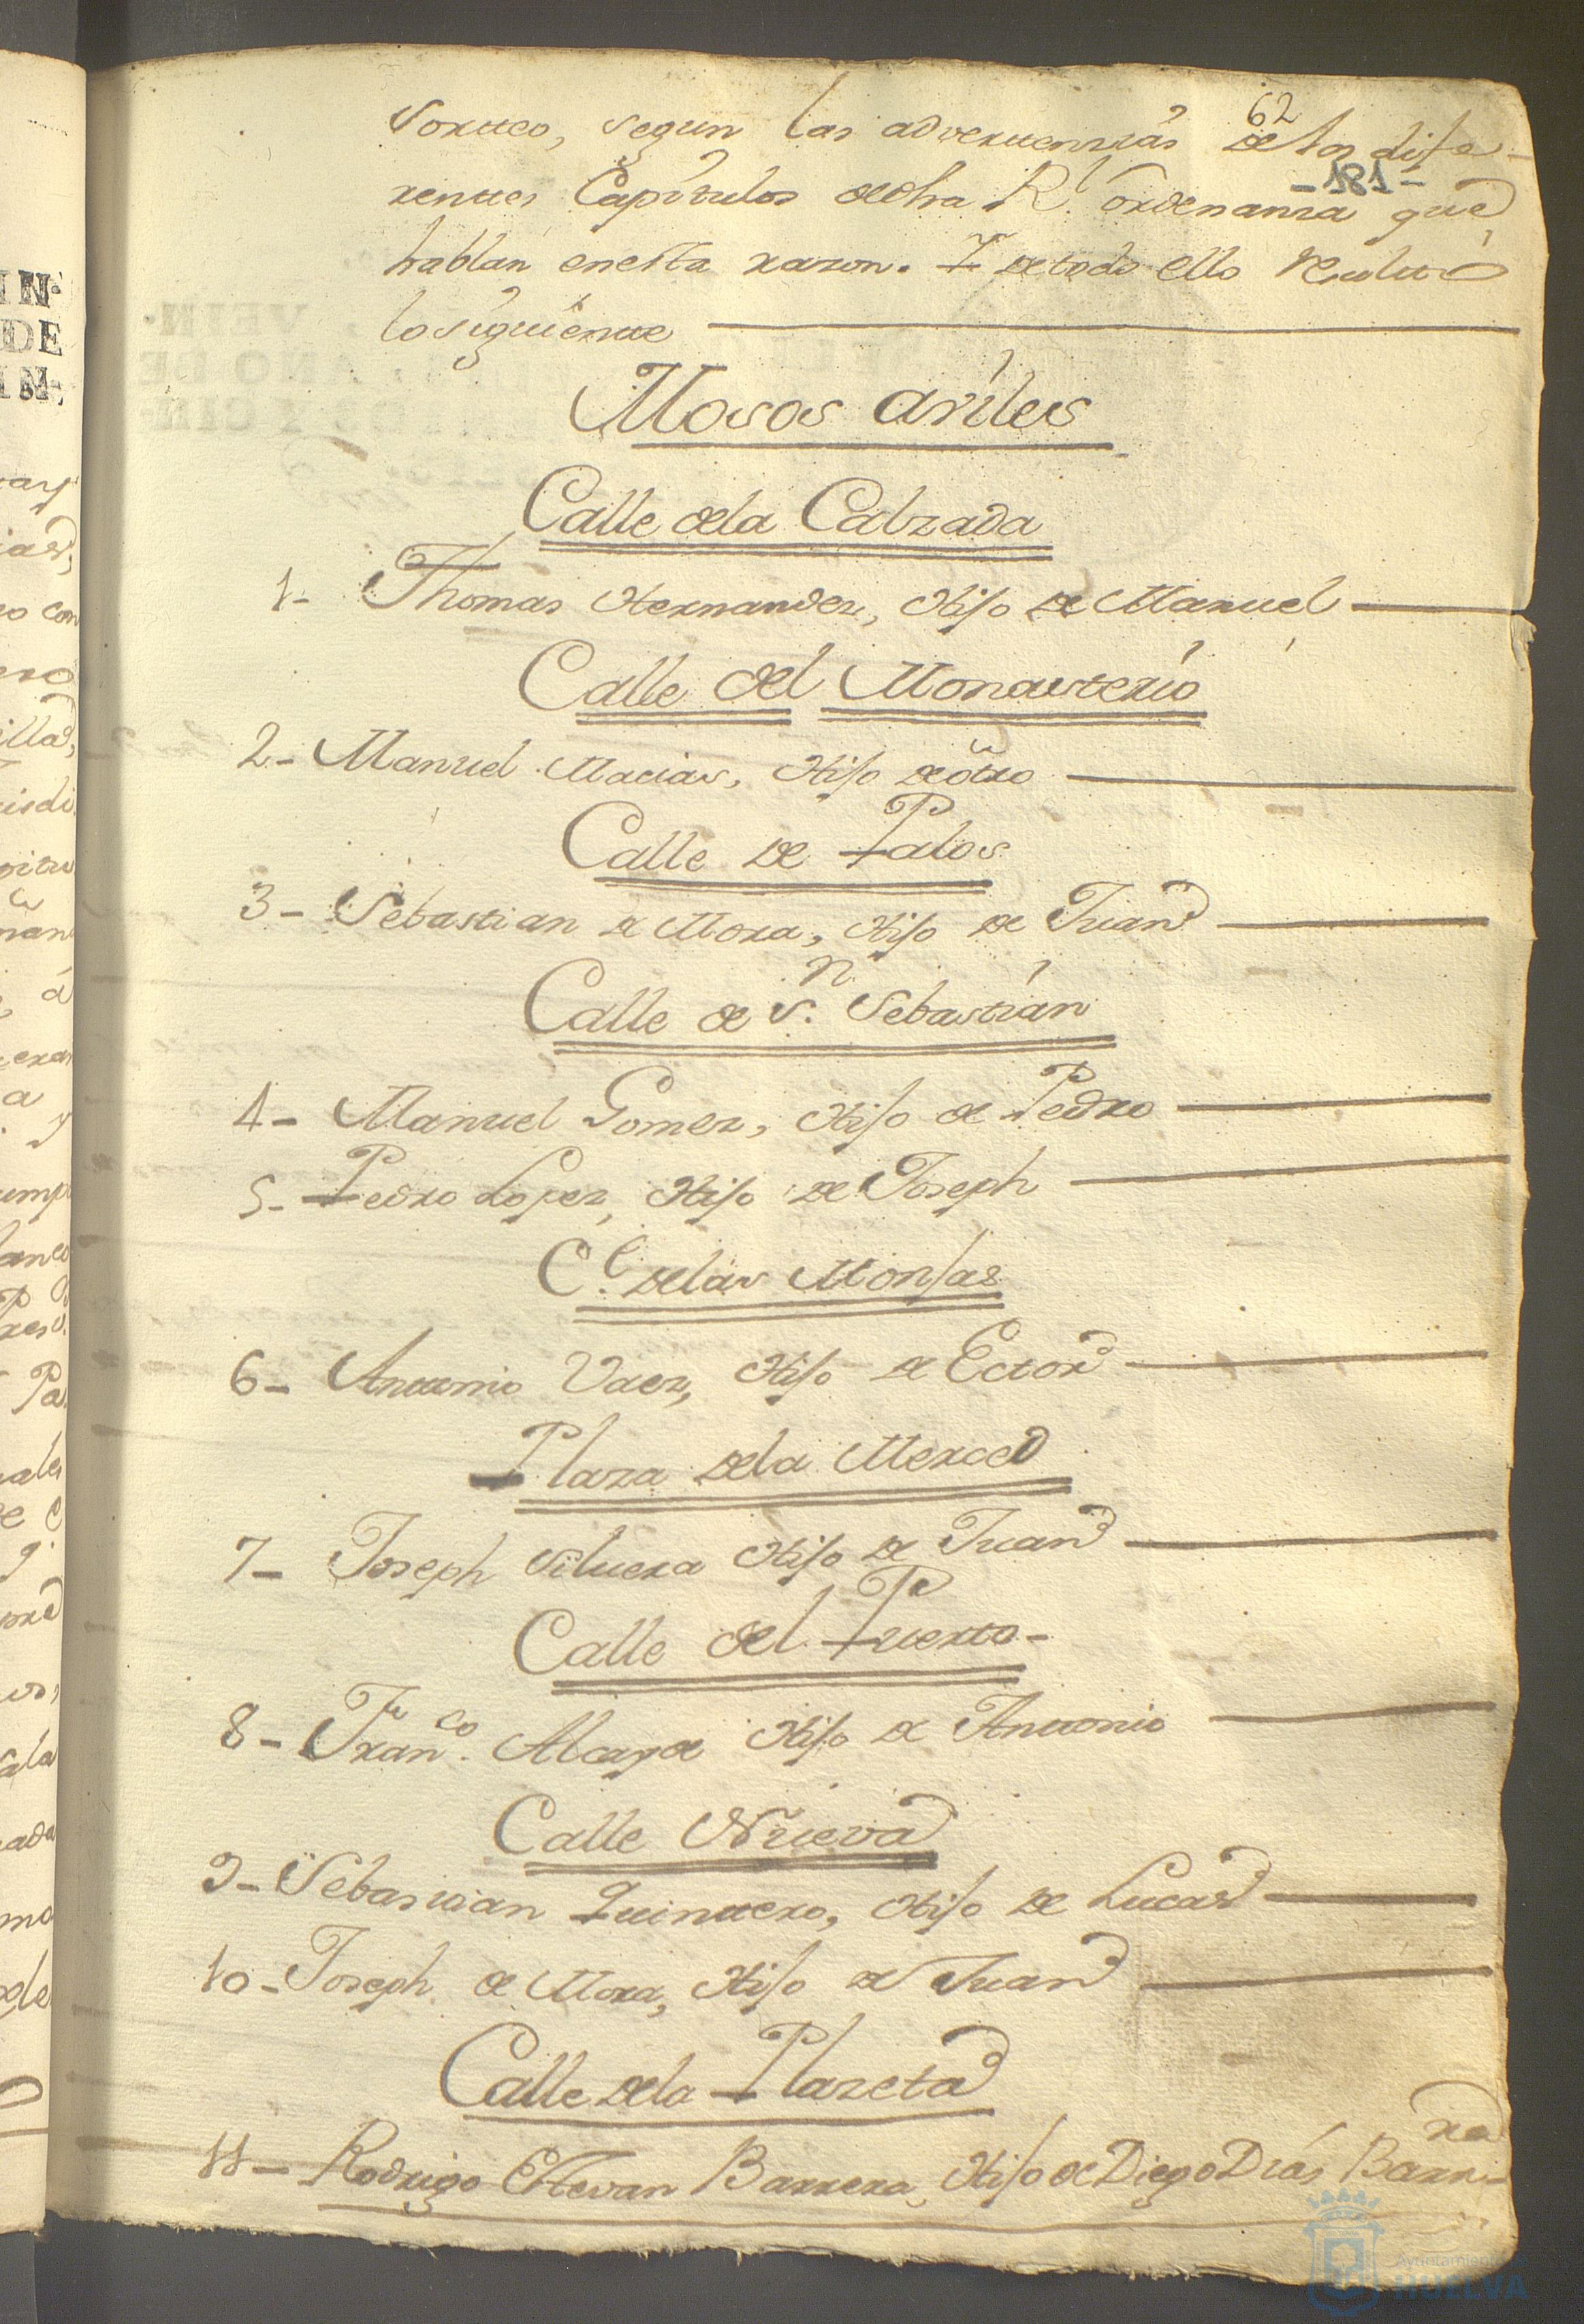 62
Sorteo, segun las advertensias de los dife-
-181-
rentes Capitulos de dha Rl. ordenansa que
hablan en esta razon. Y de todo ello resultó
lo siguiente
Mosos aviles
Calle de la Calzada
1- Thomas Hernandez, Hijo de Manuel
Calle del Monasterio
2- Manuel Macias, Hijo de otro
Calle de Palos
3- Sebastian de Mora, Hijo de Juan
Calle de Sn. Sebastian
4- Manuel Gomez, Hijo de Pedro
5- Pedro Lopez, Hijo de Joseph
Ce. de las Monjas
6- Antonio Vaez, Hijo de Ector
Plaza de la Merced
7- Joseph Silvera Hijo de Juan
Calle del Puerto-
8- Franco. Alcayde Hijo de Antonio
Calle Nueva
9- Sebastian Quintero, Hijo de Lucas
10- Joseph de Mora, Hijo de Juan
Calle de la Plazeta
11- Rodrigo Estevan Barrera, Hijo de Diego Dias Barre-
ra
Ayuntamiento
HUELVA